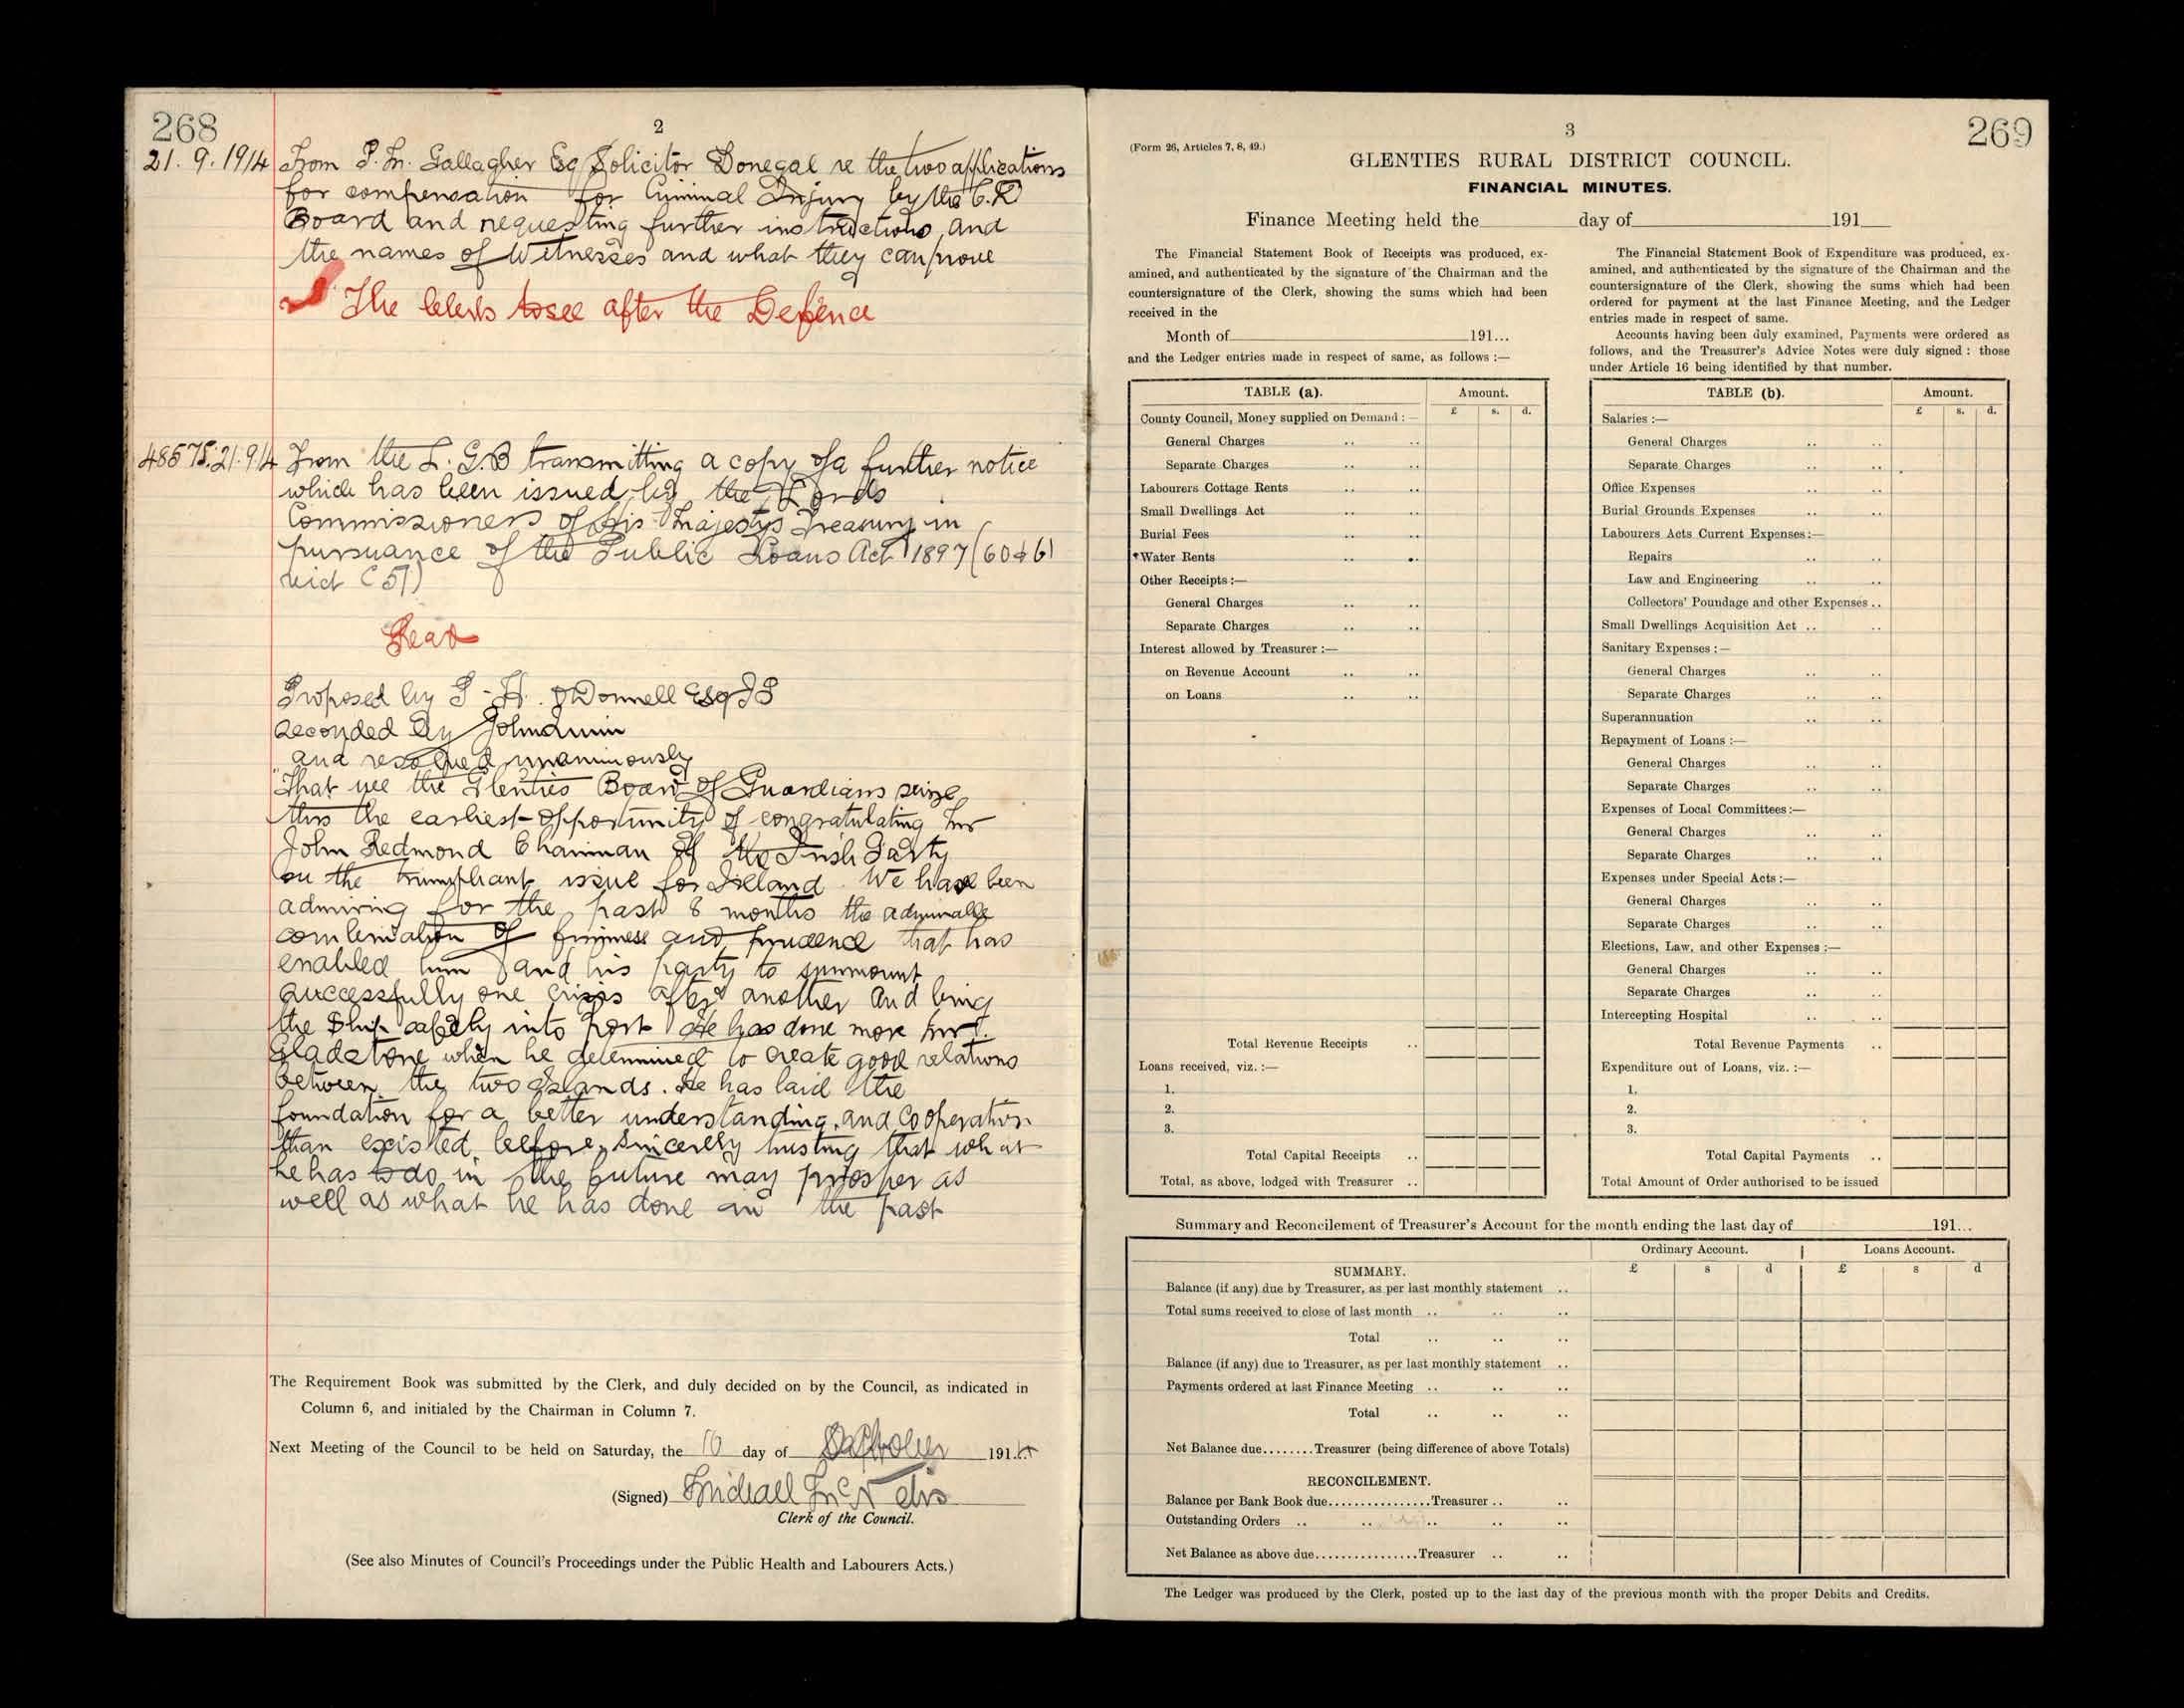 268
2
21. 9. 1914 From P. M. Gallagher Esq Solicitor Donegal re the two applications
for compensation for Criminal Injury by the C. D
Board and requesting further instructions and
the names of Witnesses and what they can prove
The Clerk to see after the Defence
48575. 21. 9. 14 From the L. G. B transmitting a copy of a further notice
which has been issued by the Lords
Commissioners of His Majestys Treasury in
pursuance of the Public Loans Act 1897 (60 & 61
Vict C 51)
Read
Proposed by P. H. O'Donnell Esq JP
Seconded by John
and resolved unanimously
"That we the Glenties Board of Guardians seize
this the earliest opportunity of congratulating Mr
John Redmond Chairman of the Irish Party
on the triumphant issue for Ireland. We have been
admiring for the past 8 months the admirable
combination of firmness and prudence that has
enabled him and his party to surmount
successfully one crisis after another and bring
the Ship safely into port He has done more
Gladstone when he determined to create good relations
between the two Islands. He has laid the
foundation for a better understanding, and Cooperation
than existed before, sincerely trusting that what
he has to do in the future may prosper as
well as what he has done in the past
The Requirement Book was submitted by the Clerk, and duly decided on by the Council, as indicated in
Column 6, and initialed by the Chairman in Column 7.
Next Meeting of the Council to be held on Saturday, the 10 day of October 1914
(Signed) Michael McNelis
Clerk of the Council.
(See also Minutes of Council's Proceedings under the Public Health and Labourers Acts.)
3
269
(Form 26, Articles 7, 8, 49.)
GLENTIES RURAL DISTRICT COUNCIL.
FINANCIAL MINUTES.
Finance Meeting held the day of 191
The Financial Statement Book of Receipts was produced, ex-
amined, and authenticated by the signature of the Chairman and the
countersignature of the Clerk, showing the sums which had been
received in the
Month of 191...
and the Ledger entries made in respect of same, as follows :—
TABLE (a). Amount.
£ s. d.
County Council, Money supplied on Demand : —
General Charges .. ..
Separate Charges .. ..
Labourers Cottage Rents .. ..
Small Dwellings Act .. ..
Burial Fees .. ..
*Water Rents .. ..
Other Receipts :—
General Charges .. ..
Separate Charges .. ..
Interest allowed by Treasurer :—
on Revenue Account .. ..
on Loans .. ..
Total Revenue Receipts ..
Loans received, viz. :—
1.
2.
3.
Total Capital Receipts ..
Total, as above, lodged with Treasurer ..
The Financial Statement Book of Expenditure was produced, ex-
amined, and authenticated by the signature of the Chairman and the
countersignature of the Clerk, showing the sums which had been
ordered for payment at the last Finance Meeting, and the Ledger
entries made in respect of same.
Accounts having been duly examined, Payments were ordered as
follows, and the Treasurer's Advice Notes were duly signed : those
under Article 16 being identified by that number.
TABLE (b). Amount.
£ s. d.
Salaries :—
General Charges .. ..
Separate Charges .. ..
Office Expenses .. ..
Burial Grounds Expenses .. ..
Labourers Acts Current Expenses :—
Repairs .. ..
Law and Engineering .. ..
Collectors' Poundage and other Expenses ..
Small Dwellings Acquisition Act .. ..
Sanitary Expenses : —
General Charges .. ..
Separate Charges .. ..
Superannuation .. ..
Repayment of Loans :—
General Charges .. ..
Separate Charges .. ..
Expenses of Local Committees :—
General Charges .. ..
Separate Charges .. ..
Expenses under Special Acts :—
General Charges .. ..
Separate Charges .. ..
Elections, Law, and other Expenses :—
General Charges .. ..
Separate Charges .. ..
Intercepting Hospital .. ..
Total Revenue Payments ..
Expenditure out of Loans, viz. :—
1.
2.
3.
Total Capital Payments ..
Total Amount of Order authorised to be issued
Summary and Reconcilement of Treasurer's Account for the month ending the last day of 191...
Ordinary Account. Loans Account.
£ s d £ s d
SUMMARY.
Balance (if any) due by Treasurer, as per last monthly statement ..
Total sums received to close of last month .. .. ..
Total .. .. ..
Balance (if any) due to Treasurer, as per last monthly statement ..
Payments ordered at last Finance Meeting .. .. ..
Total .. .. ..
Net Balance due........Treasurer (being difference of above Totals)
RECONCILEMENT.
Balance per Bank Book due................Treasurer .. ..
Outstanding Orders .. .. .. .. ..
Net Balance as above due................Treasurer .. ..
The Ledger was produced by the Clerk, posted up to the last day of the previous month with the proper Debits and Credits.